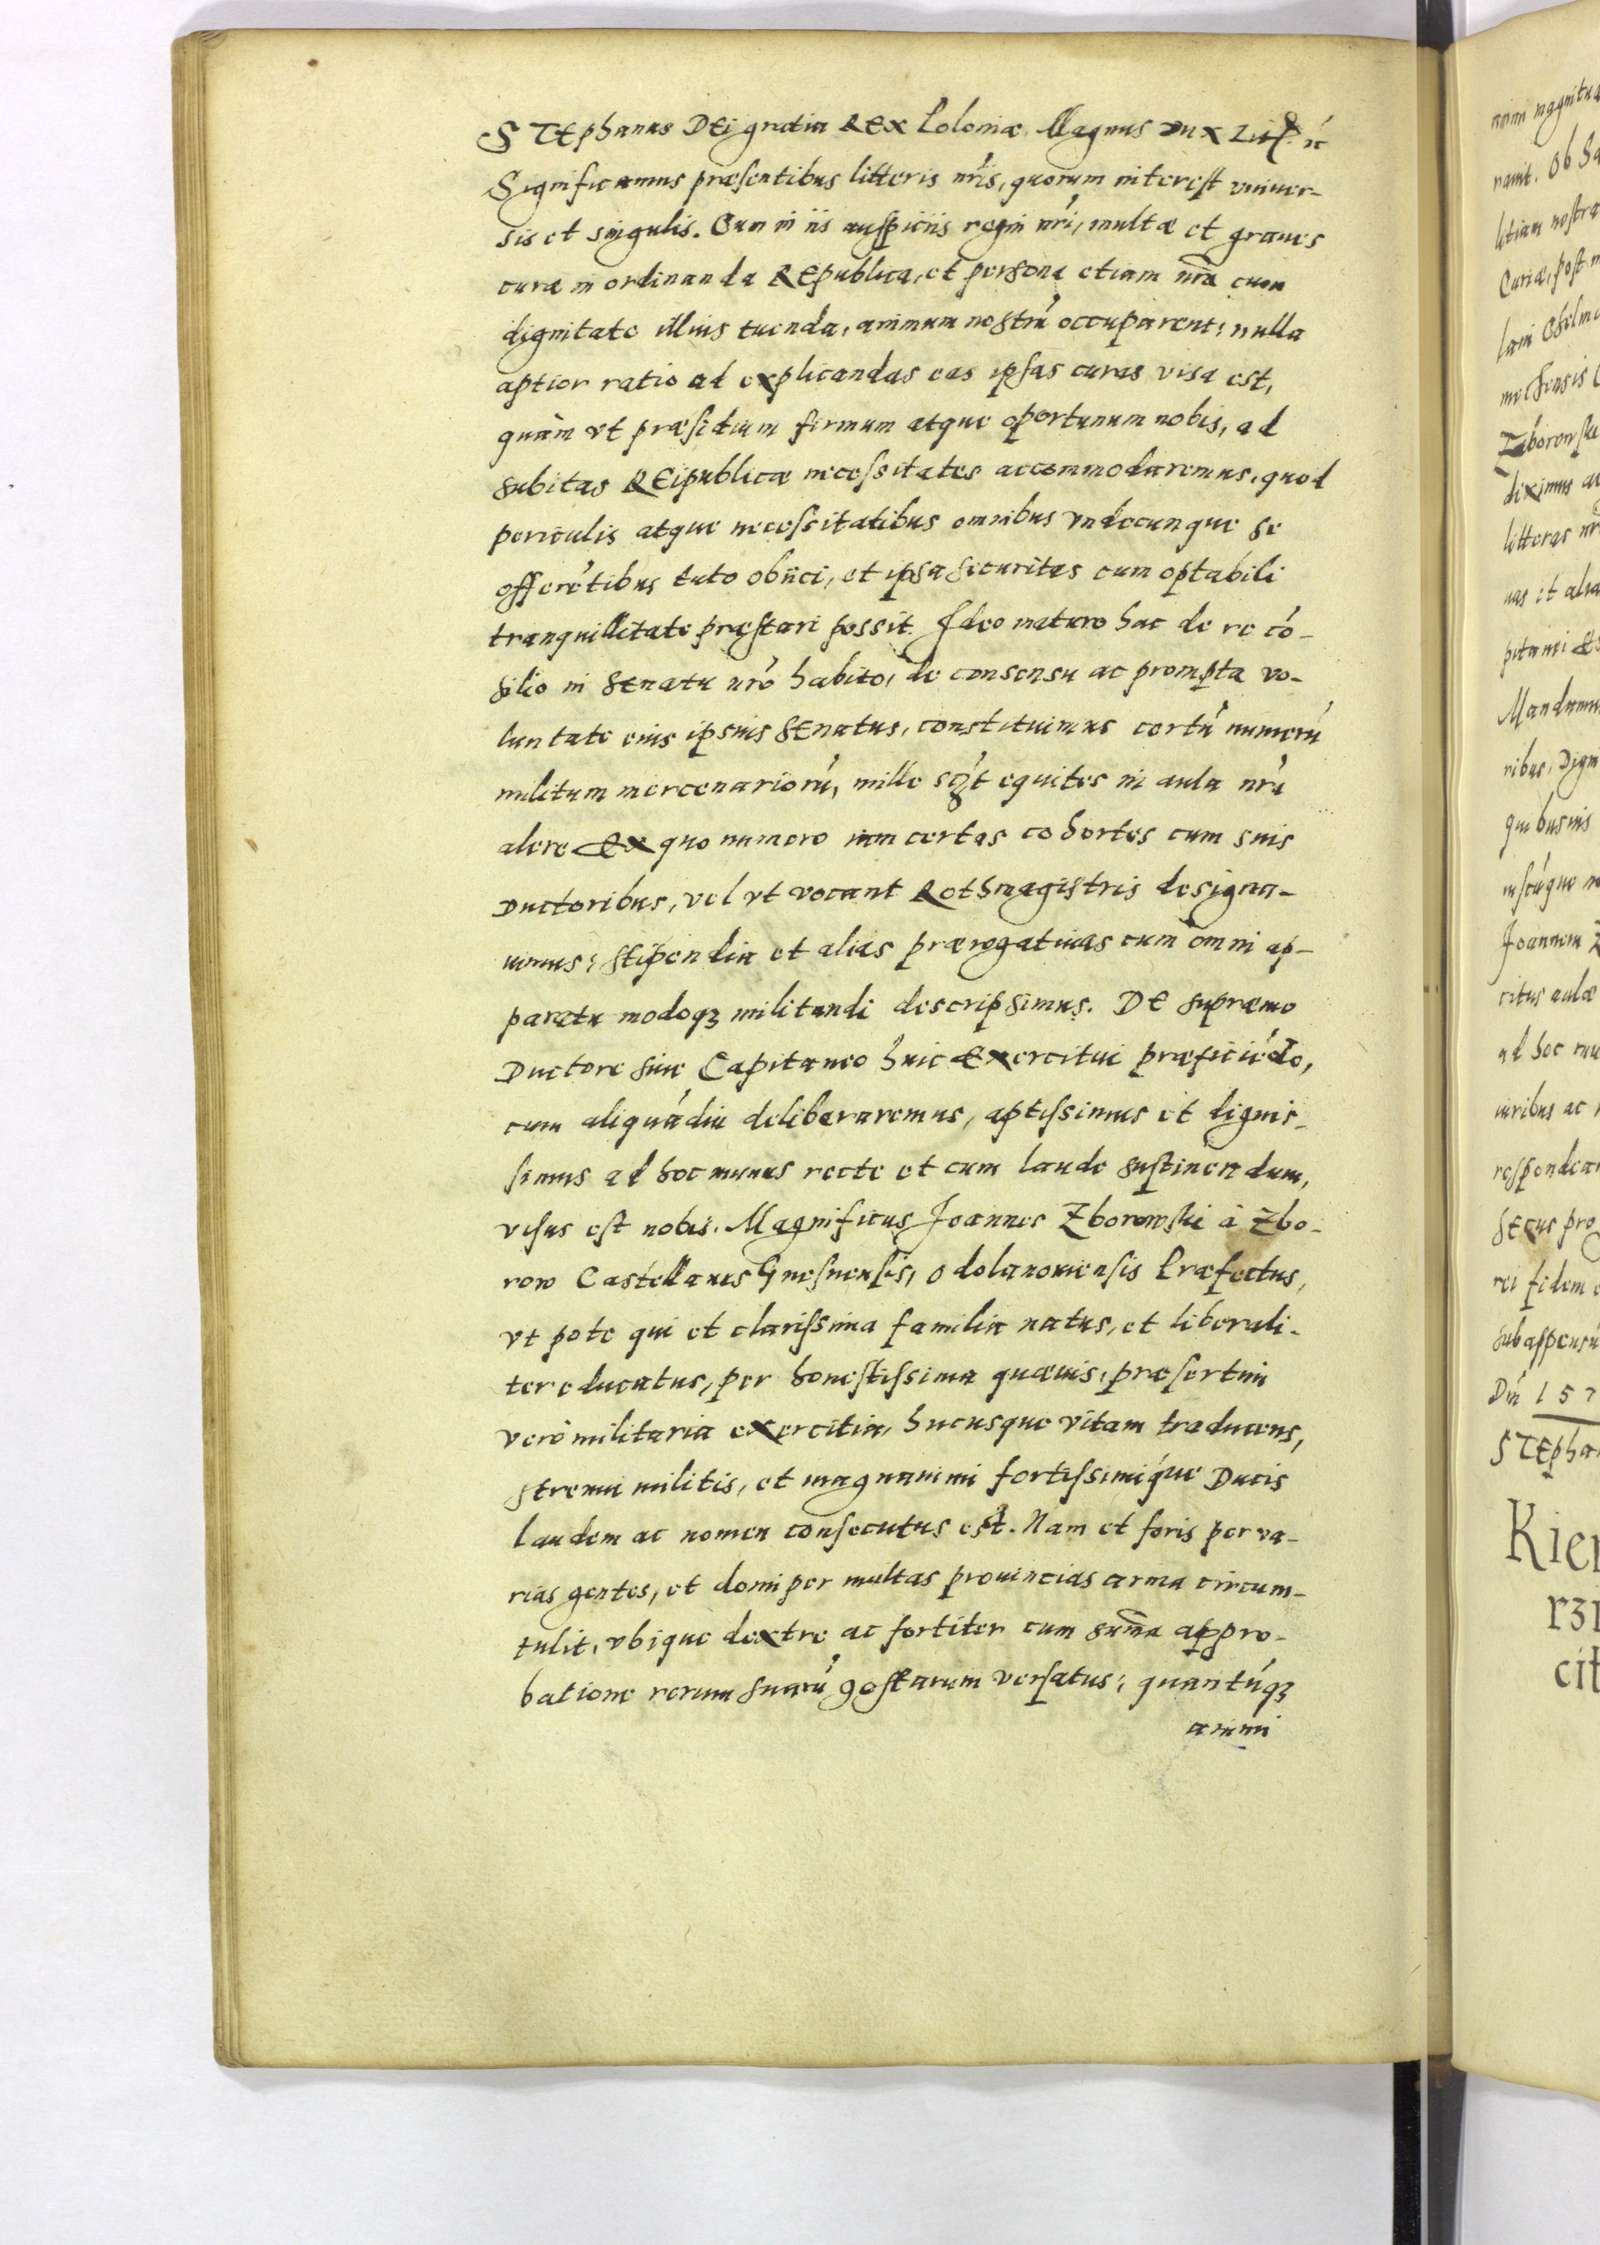 STEphanus DEi gratia REx Poloniæ Magnus Dux Lit
Significamus præsentibus litteris nr̃is, quorum interest vniuer-
sis et singulis. Cum in iis auspiciis regni nr̃i, multæ et graues
curæ in ordinanda REpublica, et persona etiam nr̃a cum
dignitate illius tuenda, animum nostrũ occuparent: nulla
aptior ratio ad explicandas eas ipsas curas visa est,
quàm vt præsidium firmum atque oportunum nobis, ad
subitas REipublicæ necessitates accommodaremus, quod
periculis atque necessitatibus omnibus vndecunque se
offerẽtibus tuto obiici, et ipsa securitas cum optabili
tranquillitate præstari possit. Ideo maturo hac de re cõ-
silio in SEnatu nr̃o habito, de consensu ac prompta vo-
luntate eius ipsius SEnatus, constituimus certũ numerũ
militum mercenariorũ, mille equites in aula nr̃a
alere Ex quo numero iam certas cohortes cum suis
Ductoribus, vel vt vocant Rothmagistris designa-
uimus; stipendia et alias prærogatiuas cum omni ap-
paratu modoqꝫ militandi descripsimus. DE supræmo
Ductore siue Capitaneo huic Exercitui præficiẽdo,
cum aliquãdiu deliberaremus, aptissimus et dignis-
simus ad hoc munus recte et cum laude sustinendum,
visus est nobis. Magnificus Joannes Zborowski à Zbo-
row Castellanus Gnesnensis, Odolanouiensis Præfectus,
vt pote qui et clarissima familia natus, et liberali-
ter educatus, per honestissima quæuis, præsertim
verò militaria exercitia, hucusque vitam traducens,
strenui militis, et magnanimi fortissimiq́ue Ducis
laudem ac nomen consecutus est. Nam et foris per va-
rias gentes, et domi per multas prouincias arma circum-
tulit, vbique dextre ac fortiter cum sum̃a appro-
batione rerum suarũ gestarum versatus; quantũqꝫ
animi
animi magnitu
Ob Sa
litiam nostra
Curiæ, post
Zborowski
diximus
litteras nr̃
uas et alia
pitanei
Mandamu
ribus, Dign
quibusuis
Joannem Z
citus aulæ
ad hoc mu
iuribus ac
respondea
SEcus pro
rei fidem
sub appensũ
Dñi 157
STEpha
Kier
rzi
cit